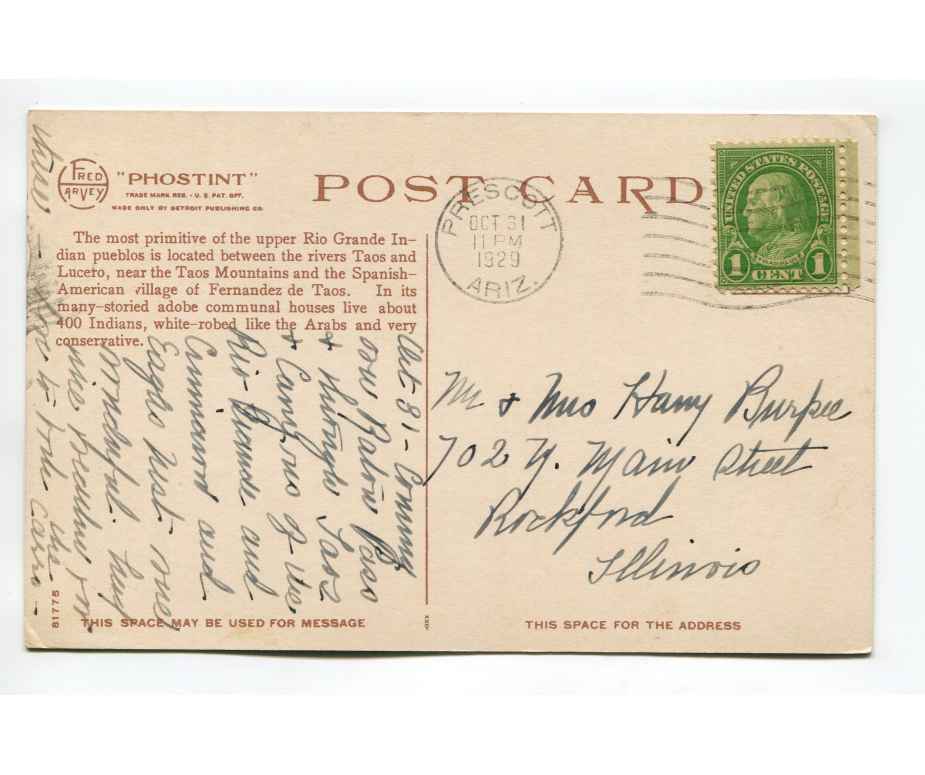 FRED HARVEY
"PHOSTINT"
TRADE MARK REG. - U. S. PAT. OFF.
MADE ONLY BY DETROIT PUBLISHING CO.
POST CARD
PRESCOTT
OCT 31
11 PM
1929
ARIZ.
UNITED STATES POSTAGE
1 CENT 1
The most primitive of the upper Rio Grande In-
dian pueblos is located between the rivers Taos and
Lucero, near the Taos Mountains and the Spanish-
American village of Fernandez de Taos. In its
many-storied adobe communal houses live about
400 Indians, white-robed like the Arabs and very
conservative.
Oct-31- Coming
over Raton Pass
& through Taos
& Canyons of the
Rio Grande and
Cimmaron and
Eagles Nest
wonderful.
nice
the
Mr & Mrs Harry Burpee
702 N. Main Street
Rockford
Illinois
81775
THIS SPACE MAY BE USED FOR MESSAGE
THIS SPACE FOR THE ADDRESS